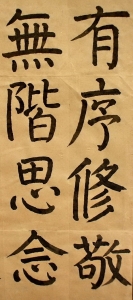 有序修敬
無階思念